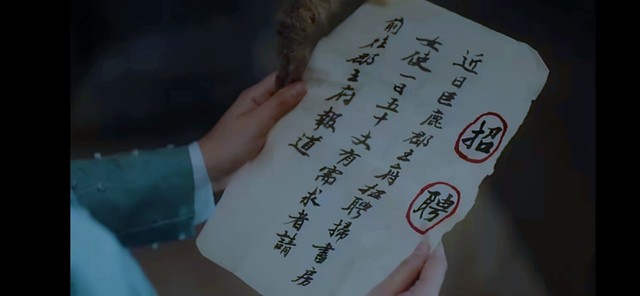 招聘
近日臣鹿郡王府招聘掃書房
女使一日五十文有需求者請
前往郡王府報道